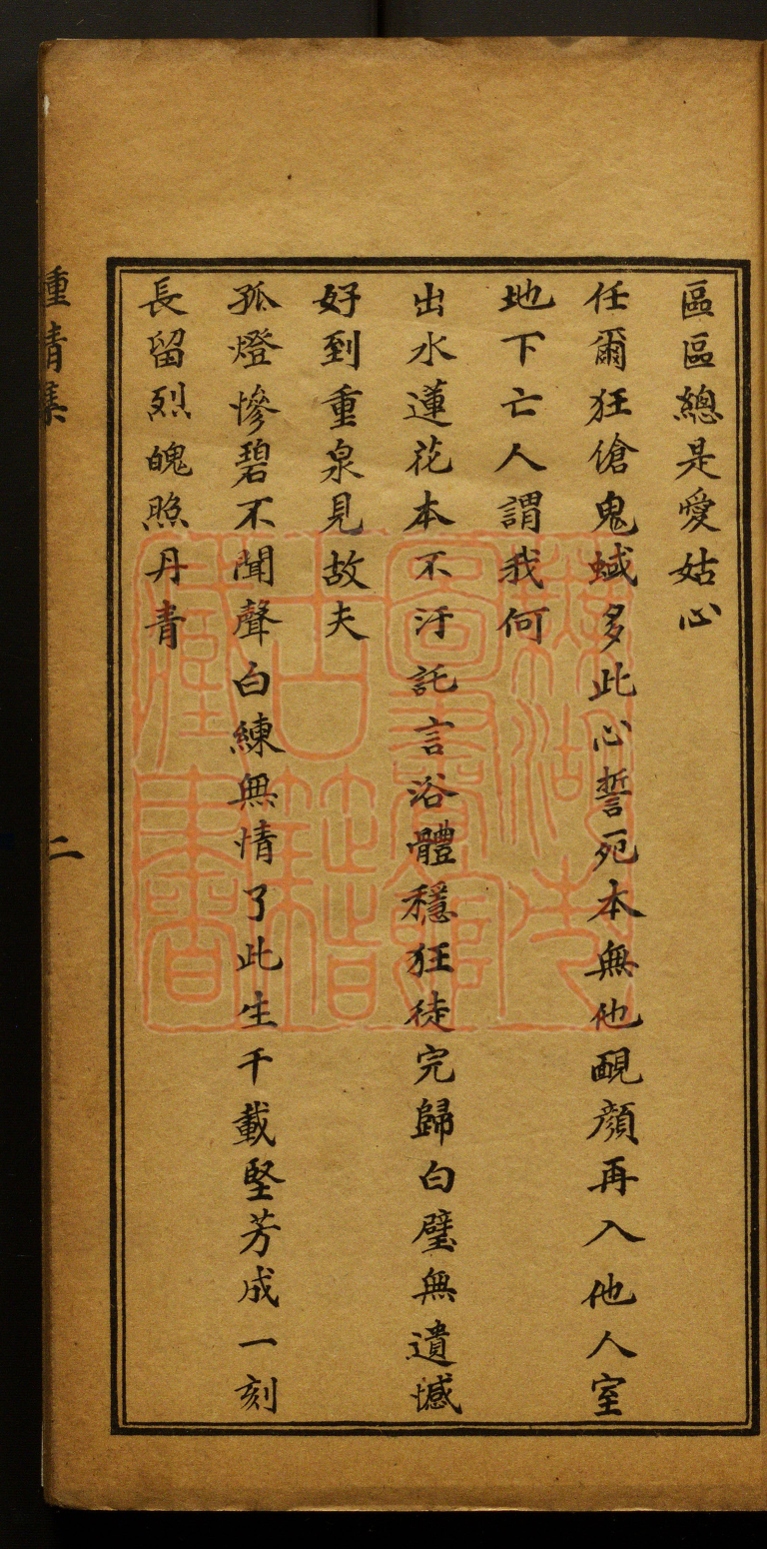 區區總是愛姑心
任爾狂傖鬼蜮多此心誓死本無他靦顏再入他人室
地下亡人謂我何
出水蓮花本不汙託言浴體穩狂徒完歸白璧無遺憾
好到重泉見故夫
孤燈慘碧不聞聲白練無情了此生千載堅芳成一刻
長留烈魄照丹青
二